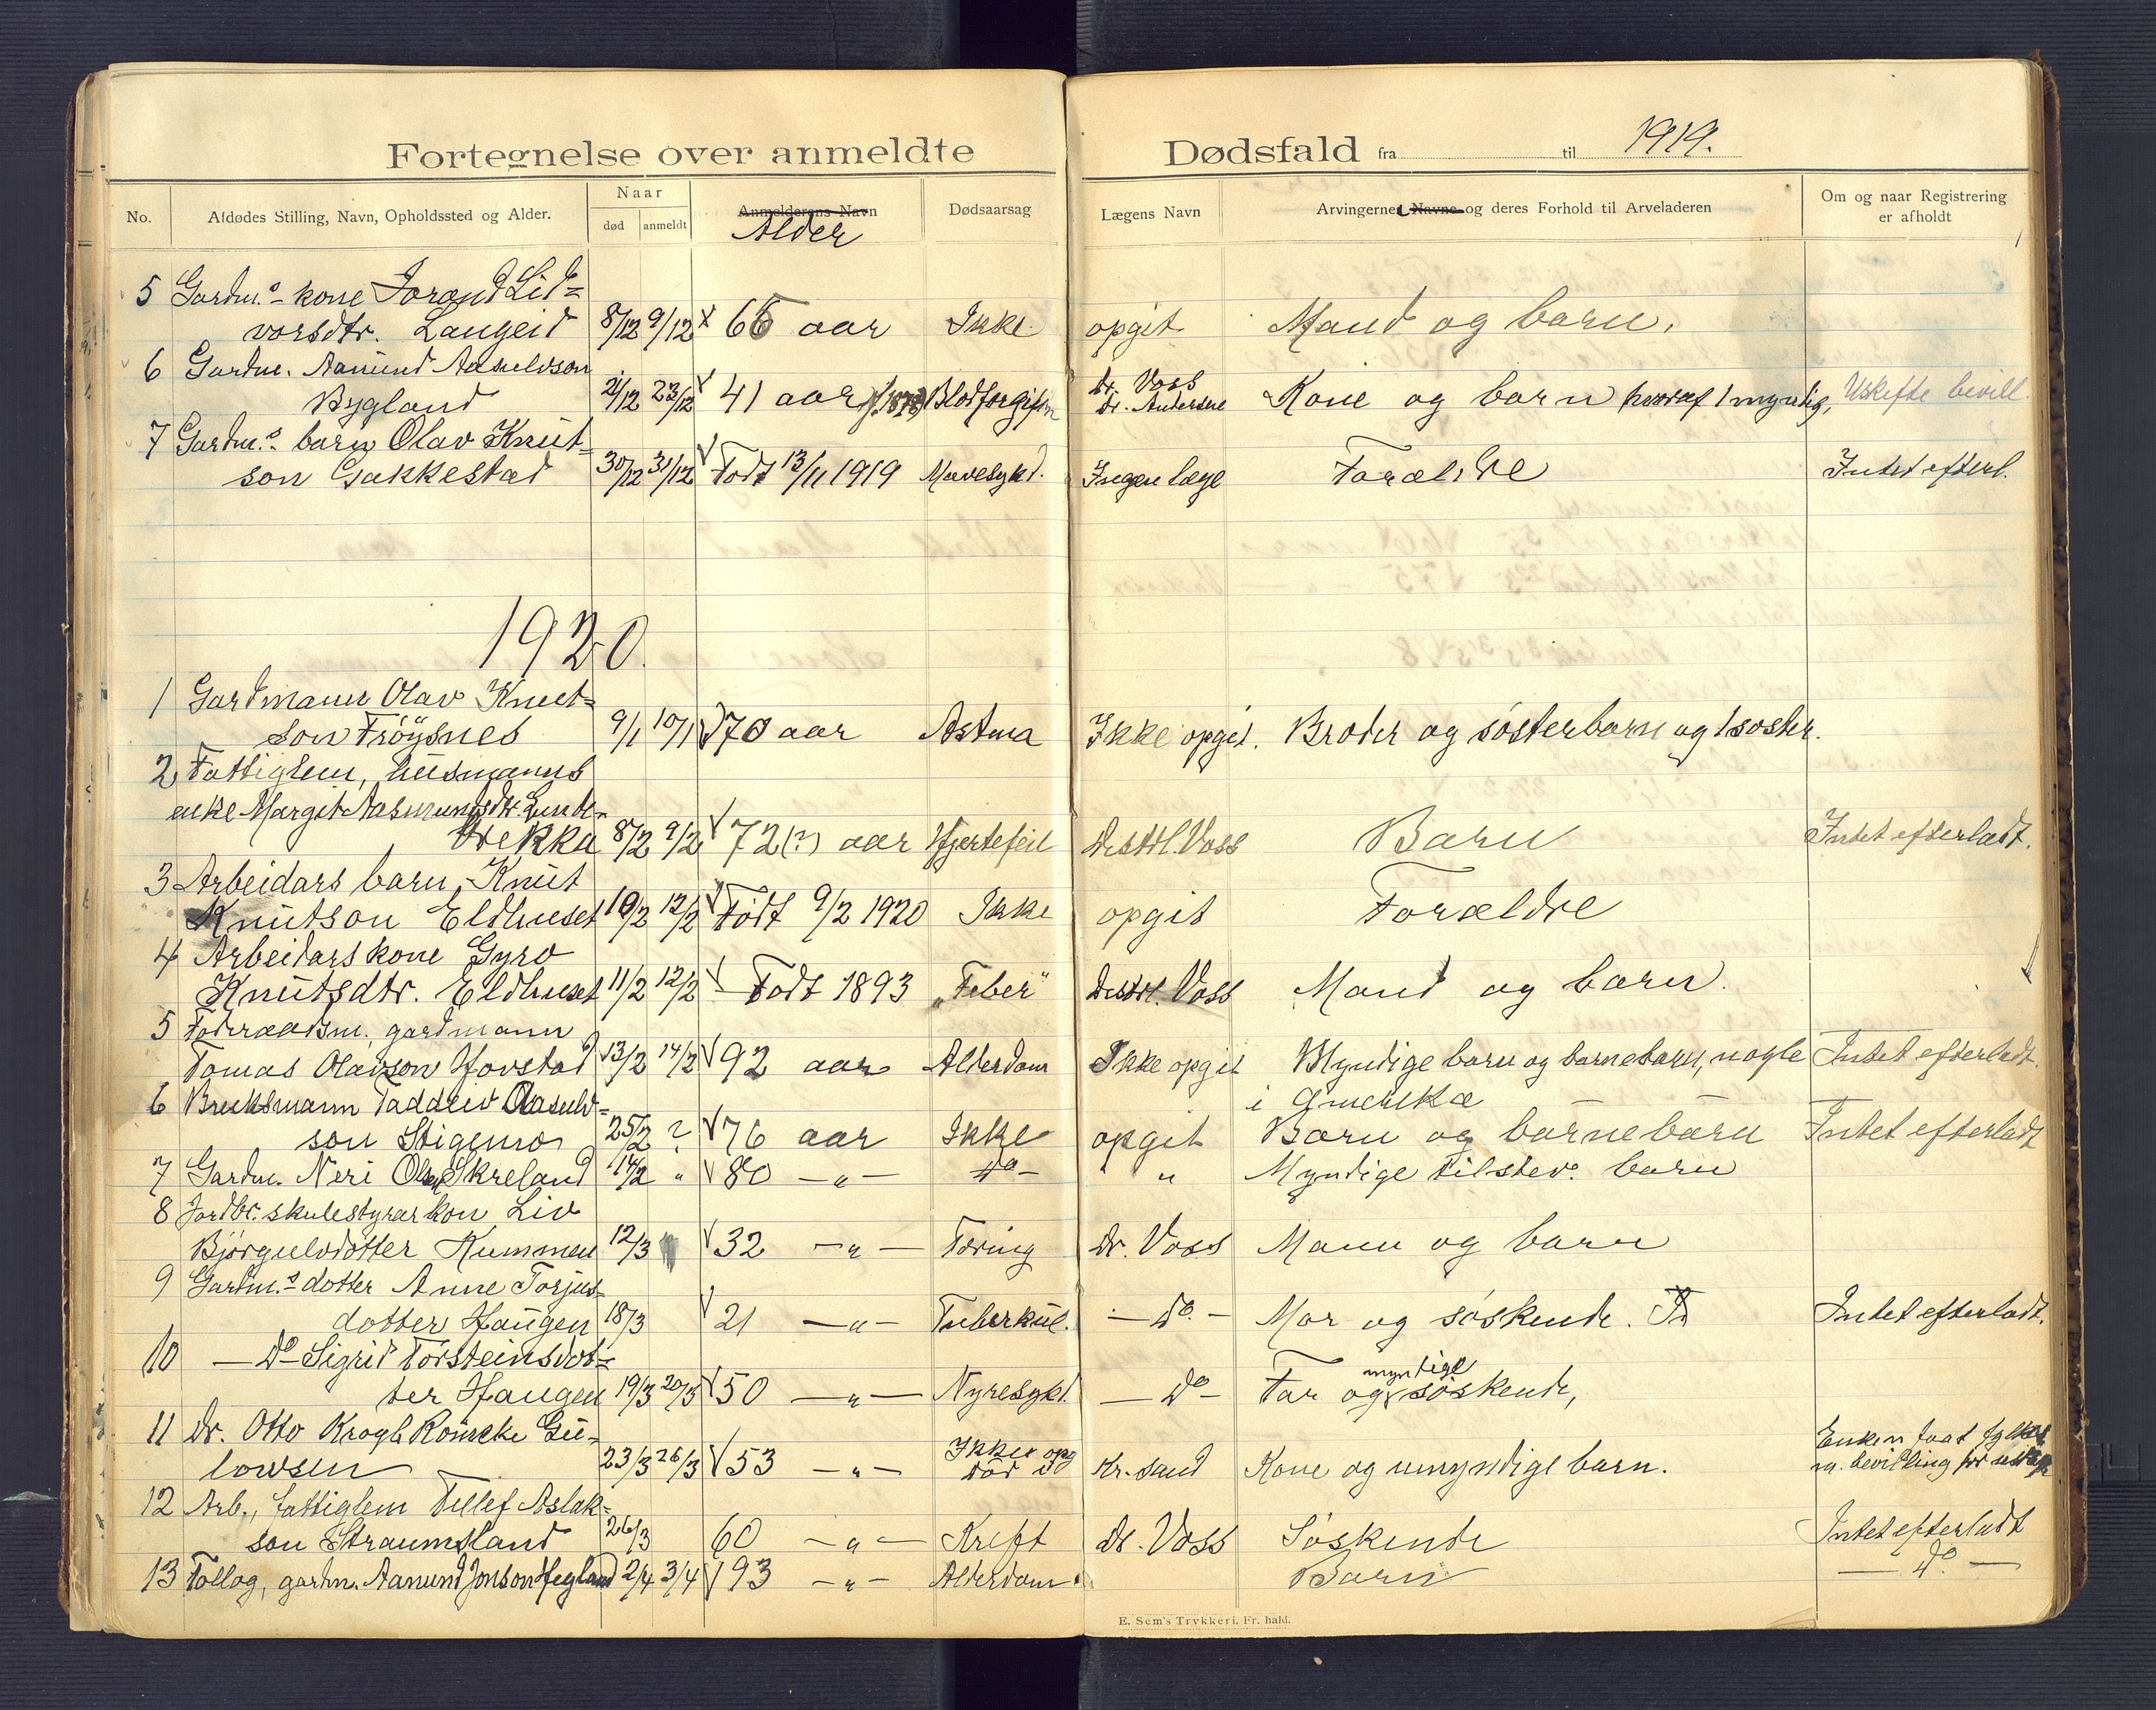 Fortegnelse over anmeldte Dødsfald fra til 1919.
No. Afdødes Stilling, Navn, Opholdssted og Alder. Naar død anmeldt Anmelderens Navn Alder Dødsaarsag Lægens Navn Arvingernes Navne og deres Forhold til Arveladeren Om og naar Registrering er afholdt
5 Gardm.s- kone Torond Lid=
vorsdtr. Langeid 8/12 9/12 66 aar Ikke opgit Mand og barn.
6 Gardm. Aamund Aasulvson
Bygland 21/12 23/12 41 aar (f. 1878) Blodforgiftn dr. Voss dr. Andersene Kone og barn hvoraf 1 myndig, Uskifte bevill.
7 Gardm.s- barn Olav Knut=
son Gakkestad 30/12 31/12 Født 13/11 1919 Mavesykd. Ingen læge Forældre Intet efterl.
1920.
1 Gardmann Olav Knut=
son Frøysnes 9/1 10/1 70 aar Astma Ikke opgit. Broder og søsterbarn og 1 søster.
2 Fattiglem, husmanns
enke Margit Aasmundsdtr. Lunde-
brekka 8/2 9/2 72(?) aar Hjertefeil Distrl. Voss Barn Intet efterladt.
3 Arbeidars barn, Knut
Knutson Eldhuset 10/2 12/2 Født 9/2 1920 Ikke opgit Forældre
4 Arbeidars kone Gyro
Knutsdtr. Eldhuset 11/2 12/2 Født 1893 „Feber" Distrl. Voss Mand og barn.
5 Føderaadsm. gardmann
Tomas Olavson Hovstad 13/2 14/2 92 aar Alderdom Ikke opgit Myndige barn og barnebarn, nogle Intet efterladt.
i Amerika
6 Bruksmann Taddeiv Aasulv=
son Stigemo 25/2 ? 76 aar Ikke opgit Barn og barnebarn Intet efterladt
7 Gardm. Neri Olsen Skreland 14/2 " 80 —"— do- " Myndige tilstev. barn
8 Jordbr. skulestyrar kon Liv
Bjørgulvdotter Rummen 12/3 32 —"— Tæring dr. Voss Mann og barn
9 Gardm.s- dotter Anne Torjus=
dotter Haugen 18/3 21 —"— Tuberkul. —do.— Mor og søskende. Intet efterladt.
10 —do- Sigrid Torsteinsdot=
ter Haugen 19/3 20/3 50 —"— Nyresykd. —do— Far og myndige søskende,
11 Dr. Otto Krogh Römcke Gu-
lowsen 23/3 26/3 53 —"— Ikke opg død i Kr.sand Kone og umyndige barn. Enken faat fylkes
m. bevilling for uskifte
12 Arb., fattiglem Tellef Aslak=
son Straumsland 26/3 60 —"— Kreft dr. Voss Søskende Intet efterladt
13 Føllog, gardm. Aamund Jonson Hegland 2/4 3/4 93 —"— Alderdom Barn —do.—
E. Sem's Trykkeri, Fr. hald.